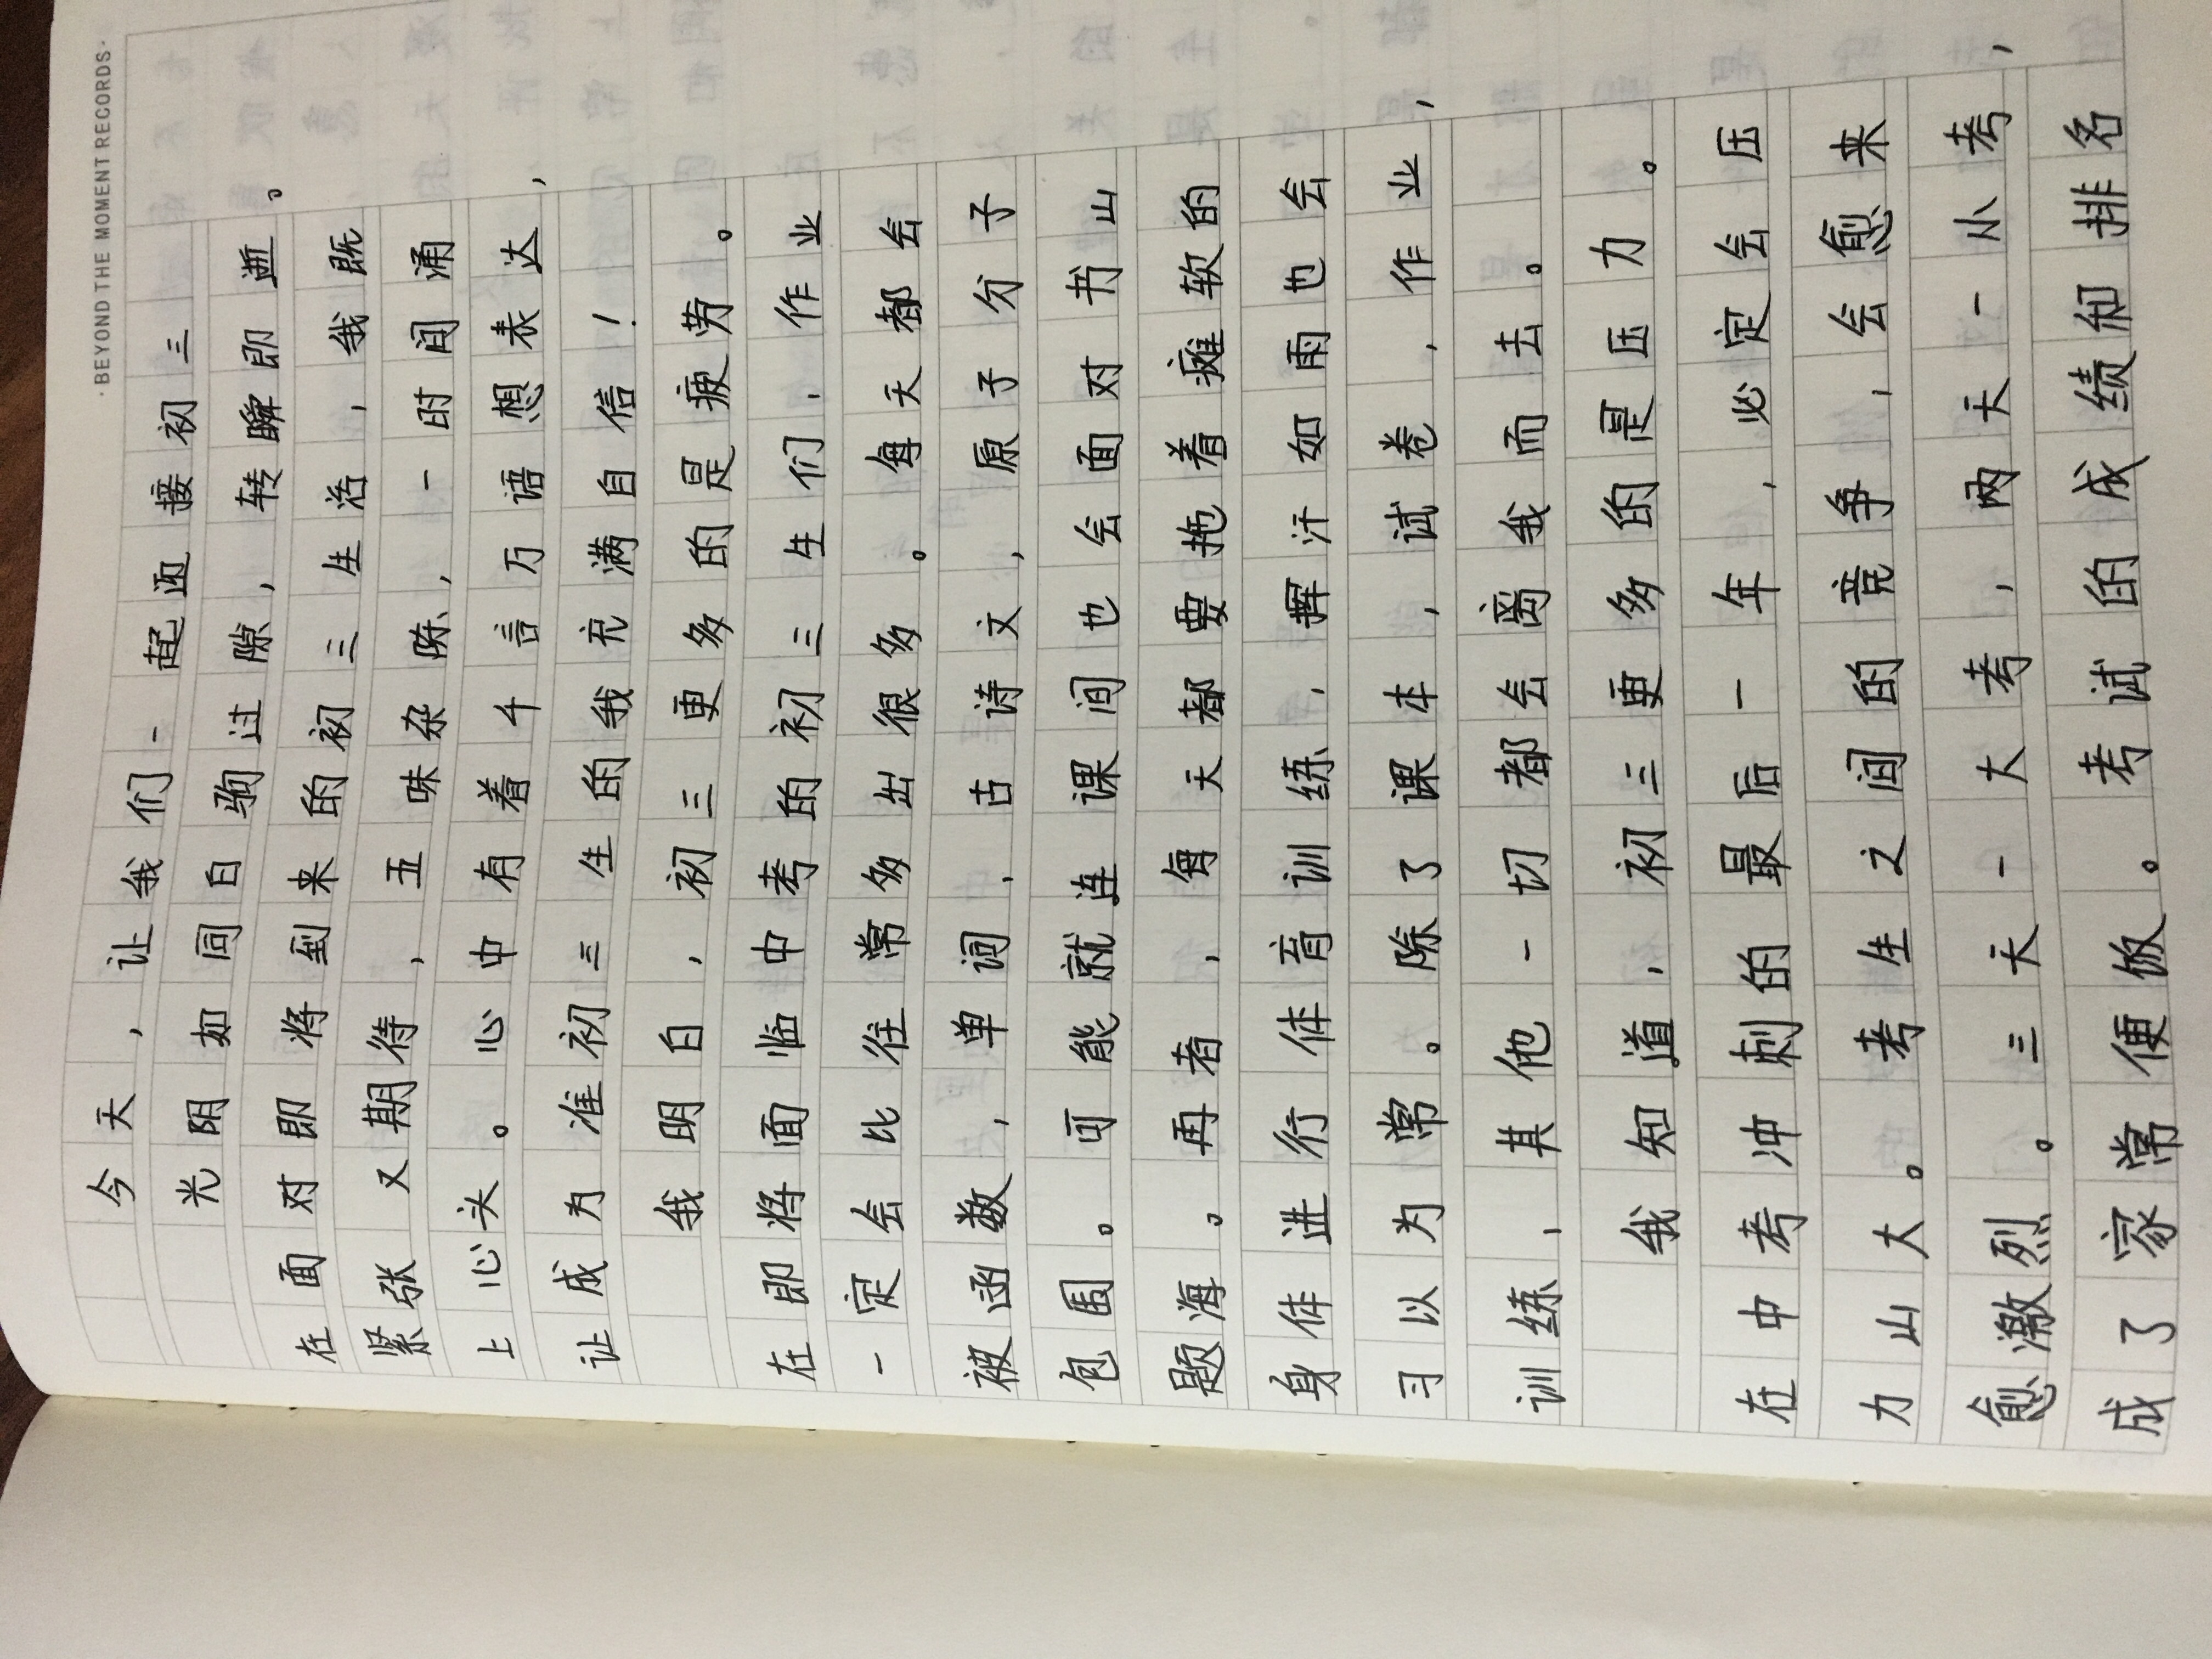 ·BEYOND THE MOMENT RECORDS·
今天，让我们一起迎接初三。
光阴如同白驹过隙，转瞬即逝。
在面对即将到来的初三生活，我既
紧张又期待，五味杂陈，一时间涌
上心头。心中有着千言万语想表达，
让成为准初三生的我充满自信！
我明白，初三更多的是疲劳。
在即将面临中考的初三生们，作业
一定会比往常多出很多。每天都会
被函数，单词，古诗文，原子分子
包围。可能就连课间也会面对书山
题海。再者，每天都要拖着瘫软的
身体进行体育训练，挥汗如雨也会
习以为常。除了课本，试卷，作业，
训练，其他一切都会离我而去。
我知道，初三更多的是压力。
在中考冲刺的最后一年，必定会压
力山大。考生之间的竞争，会愈来
愈激烈。三天一大考，两天一小考，
成了家常便饭。考试的成绩和排名